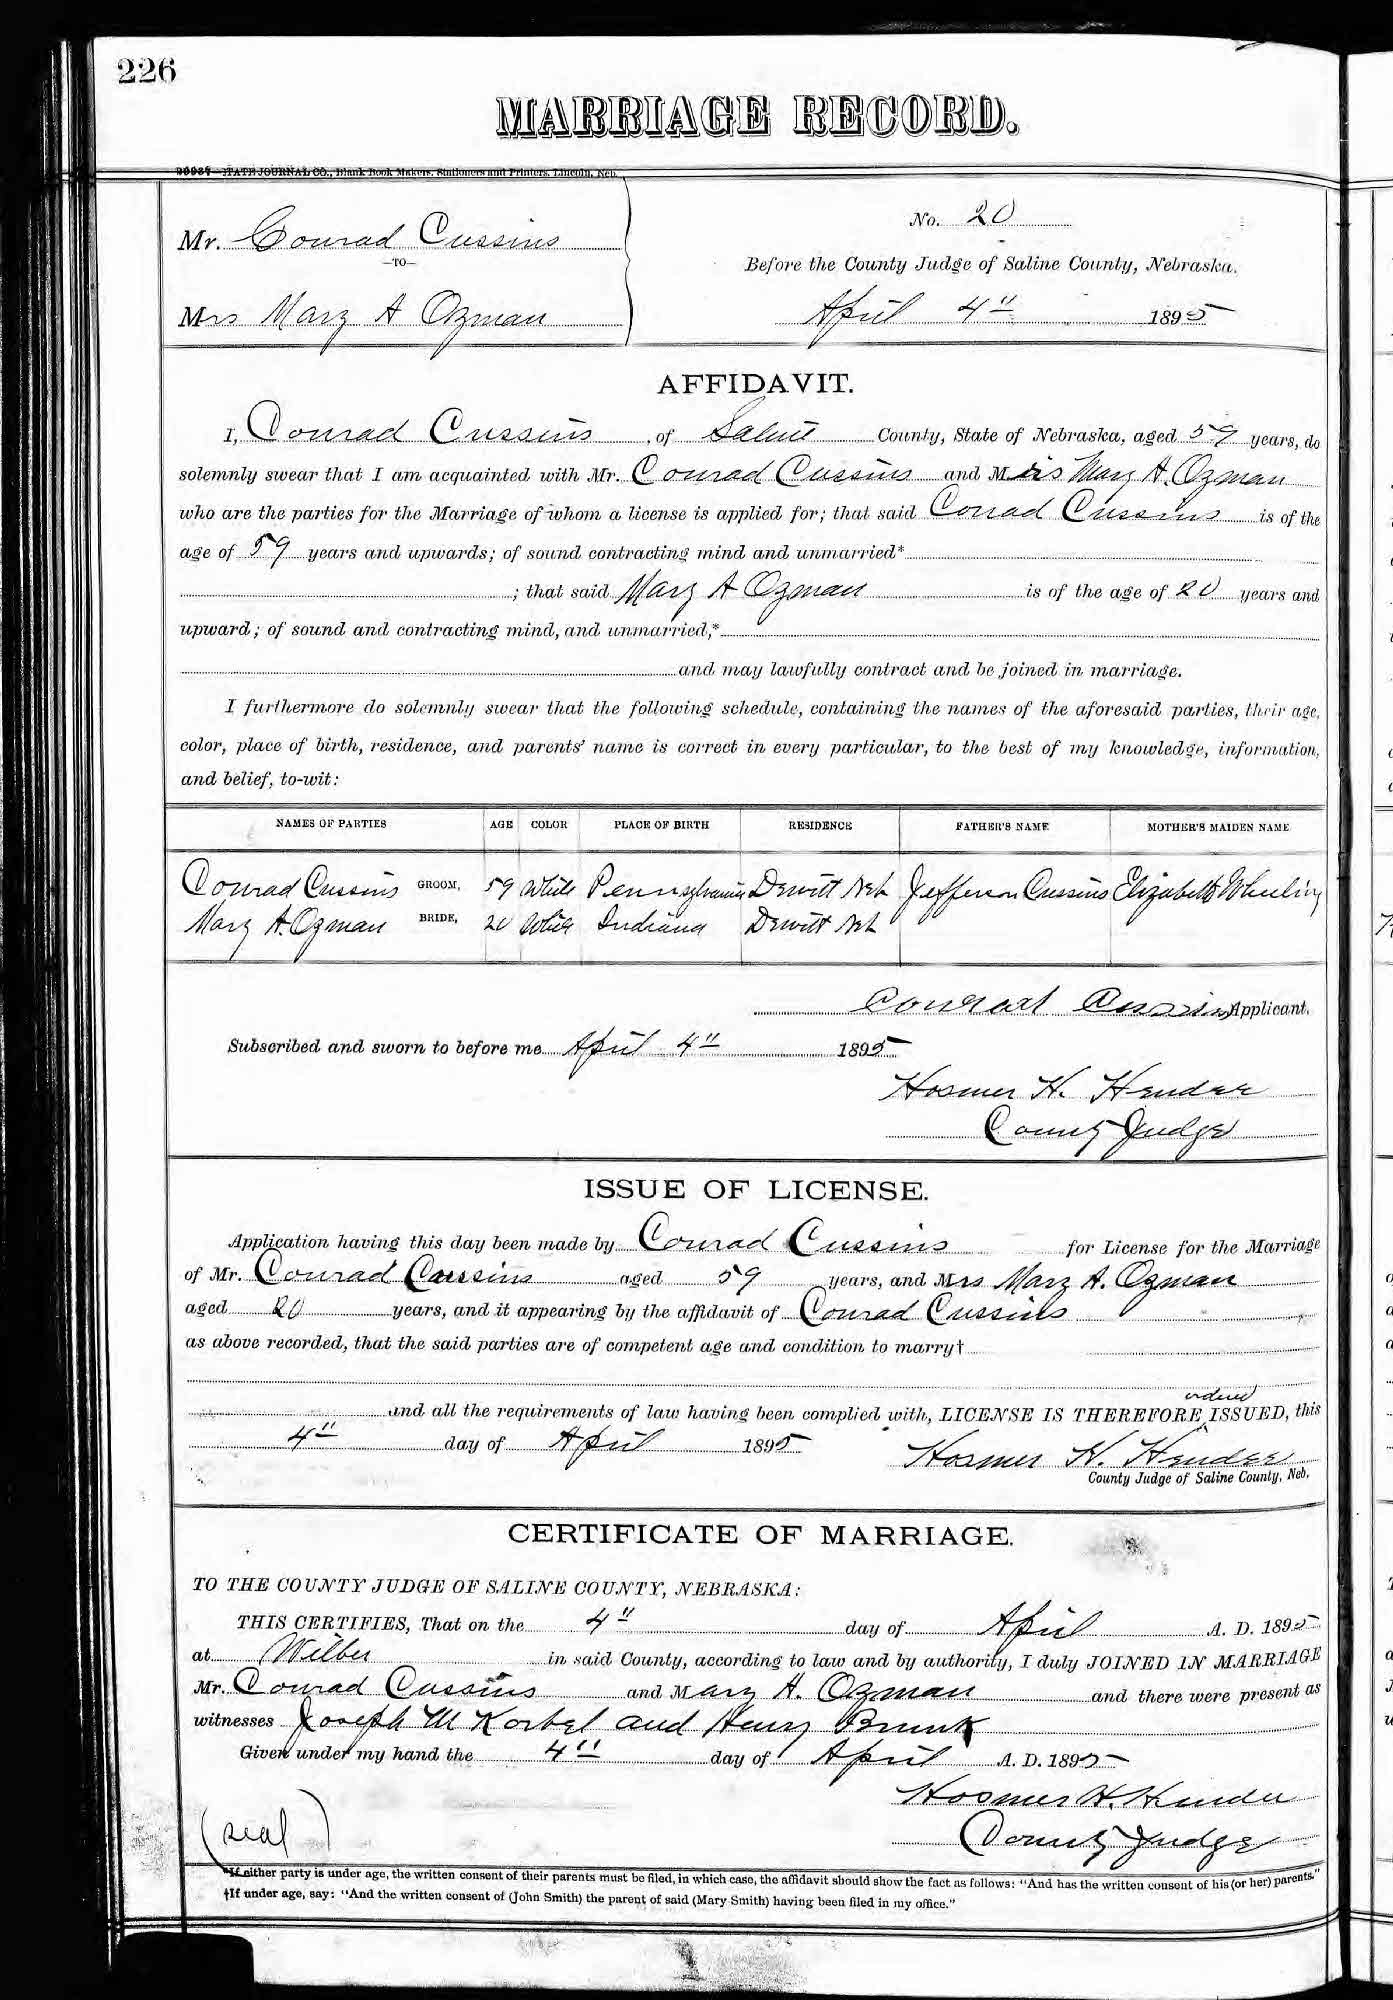 226
MARRIAGE RECORD.
STATE JOURNAL CO., Blank Book Makers, Stationers and Printers, Lincoln, Neb.
Mr. Conrad Cussins
—TO—
Mrs Mary A Ozman
No. 20
Before the County Judge of Saline County, Nebraska.
April 4" 1895
AFFIDAVIT.
I, Conrad Cussins, of Saline County, State of Nebraska, aged 59 years, do
solemnly swear that I am acquainted with Mr. Conrad Cussins and Mrs Mary A. Ozman
who are the parties for the Marriage of whom a license is applied for; that said Conrad Cussins is of the
age of 59 years and upwards; of sound contracting mind and unmarried*
; that said Mary A Ozman is of the age of 20 years and
upward; of sound and contracting mind, and unmarried,*
and may lawfully contract and be joined in marriage.
I furthermore do solemnly swear that the following schedule, containing the names of the aforesaid parties, their age,
color, place of birth, residence, and parents' name is correct in every particular, to the best of my knowledge, information,
and belief, to-wit:
NAMES OF PARTIES AGE COLOR PLACE OF BIRTH RESIDENCE FATHER'S NAME MOTHER'S MAIDEN NAME
Conrad Cussins GROOM, 59 White Pennsylvania Dewitt Neb Jefferson Cussins Elizabeth Wheeling
Mary A. Ozman BRIDE, 20 White Indiana Dewitt Neb
Conrad Cussins Applicant.
Subscribed and sworn to before me April 4" 1895
Hosmer H. Hendee
County Judge
ISSUE OF LICENSE.
Application having this day been made by Conrad Cussins for License for the Marriage
of Mr. Conrad Cussins aged 59 years, and Mrs Mary A. Ozman
aged 20 years, and it appearing by the affidavit of Conrad Cussins
as above recorded, that the said parties are of competent age and condition to marry†
ordered
and all the requirements of law having been complied with, LICENSE IS THEREFORE ISSUED, this
4" day of April 1895 Hosmer H. Hendee
County Judge of Saline County, Neb.
CERTIFICATE OF MARRIAGE.
TO THE COUNTY JUDGE OF SALINE COUNTY, NEBRASKA:
THIS CERTIFIES, That on the 4" day of April A. D. 1895
at Wilber in said County, according to law and by authority, I duly JOINED IN MARRIAGE
Mr. Conrad Cussins and Mary A. Ozman and there were present as
witnesses Joseph M Korbel and Henry Brunk
Given under my hand the 4" day of April A. D. 1895
Hosmer H. Hendee
(seal) County Judge
*If either party is under age, the written consent of their parents must be filed, in which case, the affidavit should show the fact as follows: "And has the written consent of his (or her) parents."
†If under age, say: "And the written consent of (John Smith) the parent of said (Mary Smith) having been filed in my office."